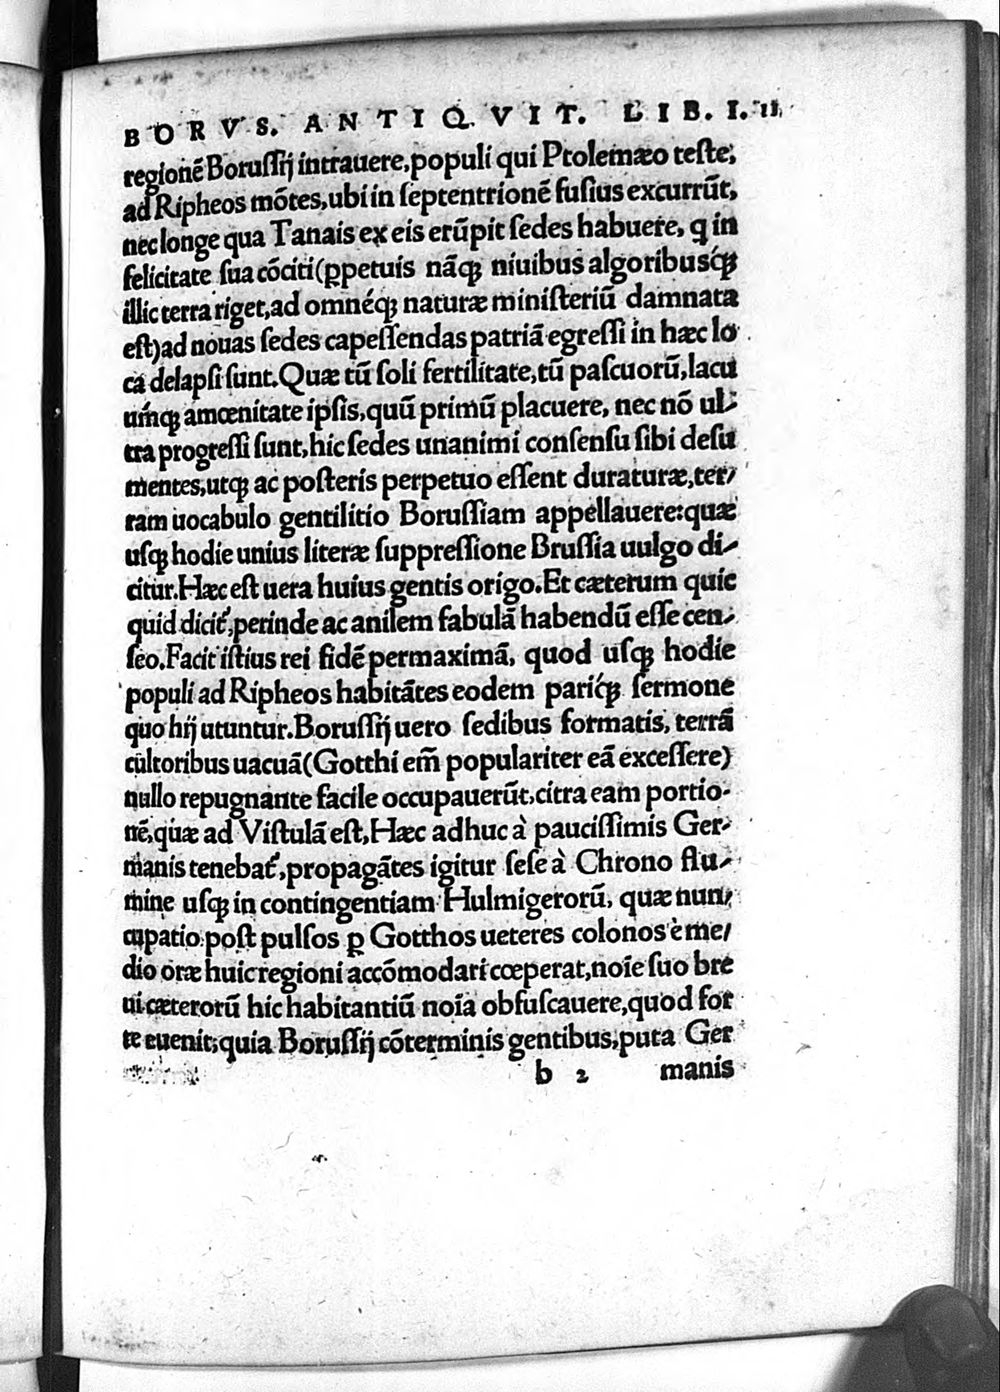 BORVS. ANTIQVIT. LIB. I. 11.
regionē Boruſſij intrauere, populi qui Ptolemæo teſte,
ad Ripheos mōtes, ubi in ſeptentrionē fuſius excurrūt,
nec longe qua Tanais ex eis erūpit ſedes habuere, ꝗ in
felicitate ſua cōciti (ꝑpetuis nāꝗ niuibus algoribusꝗ́
illic terra riget, ad omnéꝗ naturæ miniſteriū damnata
eſt) ad nouas ſedes capeſſendas patriā egreſſi in hæc lo
ca delapſi ſunt. Quæ tū ſoli fertilitate, tū paſcuorū, lacu
uḿꝗ amœnitate ipſis, quū primū placuere, nec nō ul⸗
tra progreſſi ſunt, hic ſedes unanimi conſenſu ſibi deſu
mentes, utꝗ ac poſteris perpetuo eſſent duraturæ, ter⸗
ram uocabulo gentilitio Boruſſiam appellauere: quæ
uſꝗ hodie unius literæ ſuppreſſione Bruſſia uulgo di⸗
citur. Hæc eſt uera huius gentis origo. Et cæterum quic
quid dicit᷑, perinde ac anilem fabulā habendū eſſe cen⸗
ſeo. Facit iſtius rei fidē permaximā, quod uſꝗ hodie
populi ad Ripheos habitātes eodem pariꝗ́ ſermone
quo hij utuntur. Boruſſij uero ſedibus formatis, terrā
cultoribus uacuā (Gotthi em̄ populariter eā exceſſere)
nullo repugnante facile occupauerūt, citra eam portio⸗
nē, quæ ad Viſtulā eſt, Hæc adhuc à pauciſſimis Ger⸗
manis tenebat᷑, propagātes igitur ſeſe à Chrono flu⸗
mine uſꝗ in contingentiam Hulmigerorū, quæ nun⸗
cupatio poſt pulſos ꝑ Gotthos ueteres colonos è me⸗
dio oræ huic regioni accōmodari cœperat, noīe ſuo bre
ui cæterorū hic habitantiū noīa obfuſcauere, quod for
te euenit, quia Boruſſij cōterminis gentibus, puta Ger
b 2 manis